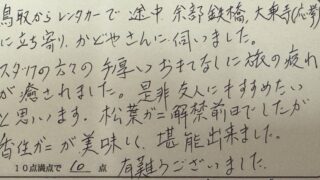 鳥取からレンタカーで途中、余部鉄橋、大乗寺(応挙)
に立ち寄り、かどやさんに伺いました。
スタッフの方々の手厚いおもてなしに旅の疲れ
が癒されました。是非友人にすすめたい
と思います。松葉ガニ解禁前日でしたが
香住ガニが美味しく、堪能出来ました。
10点満点で 10 点 有難うございました。